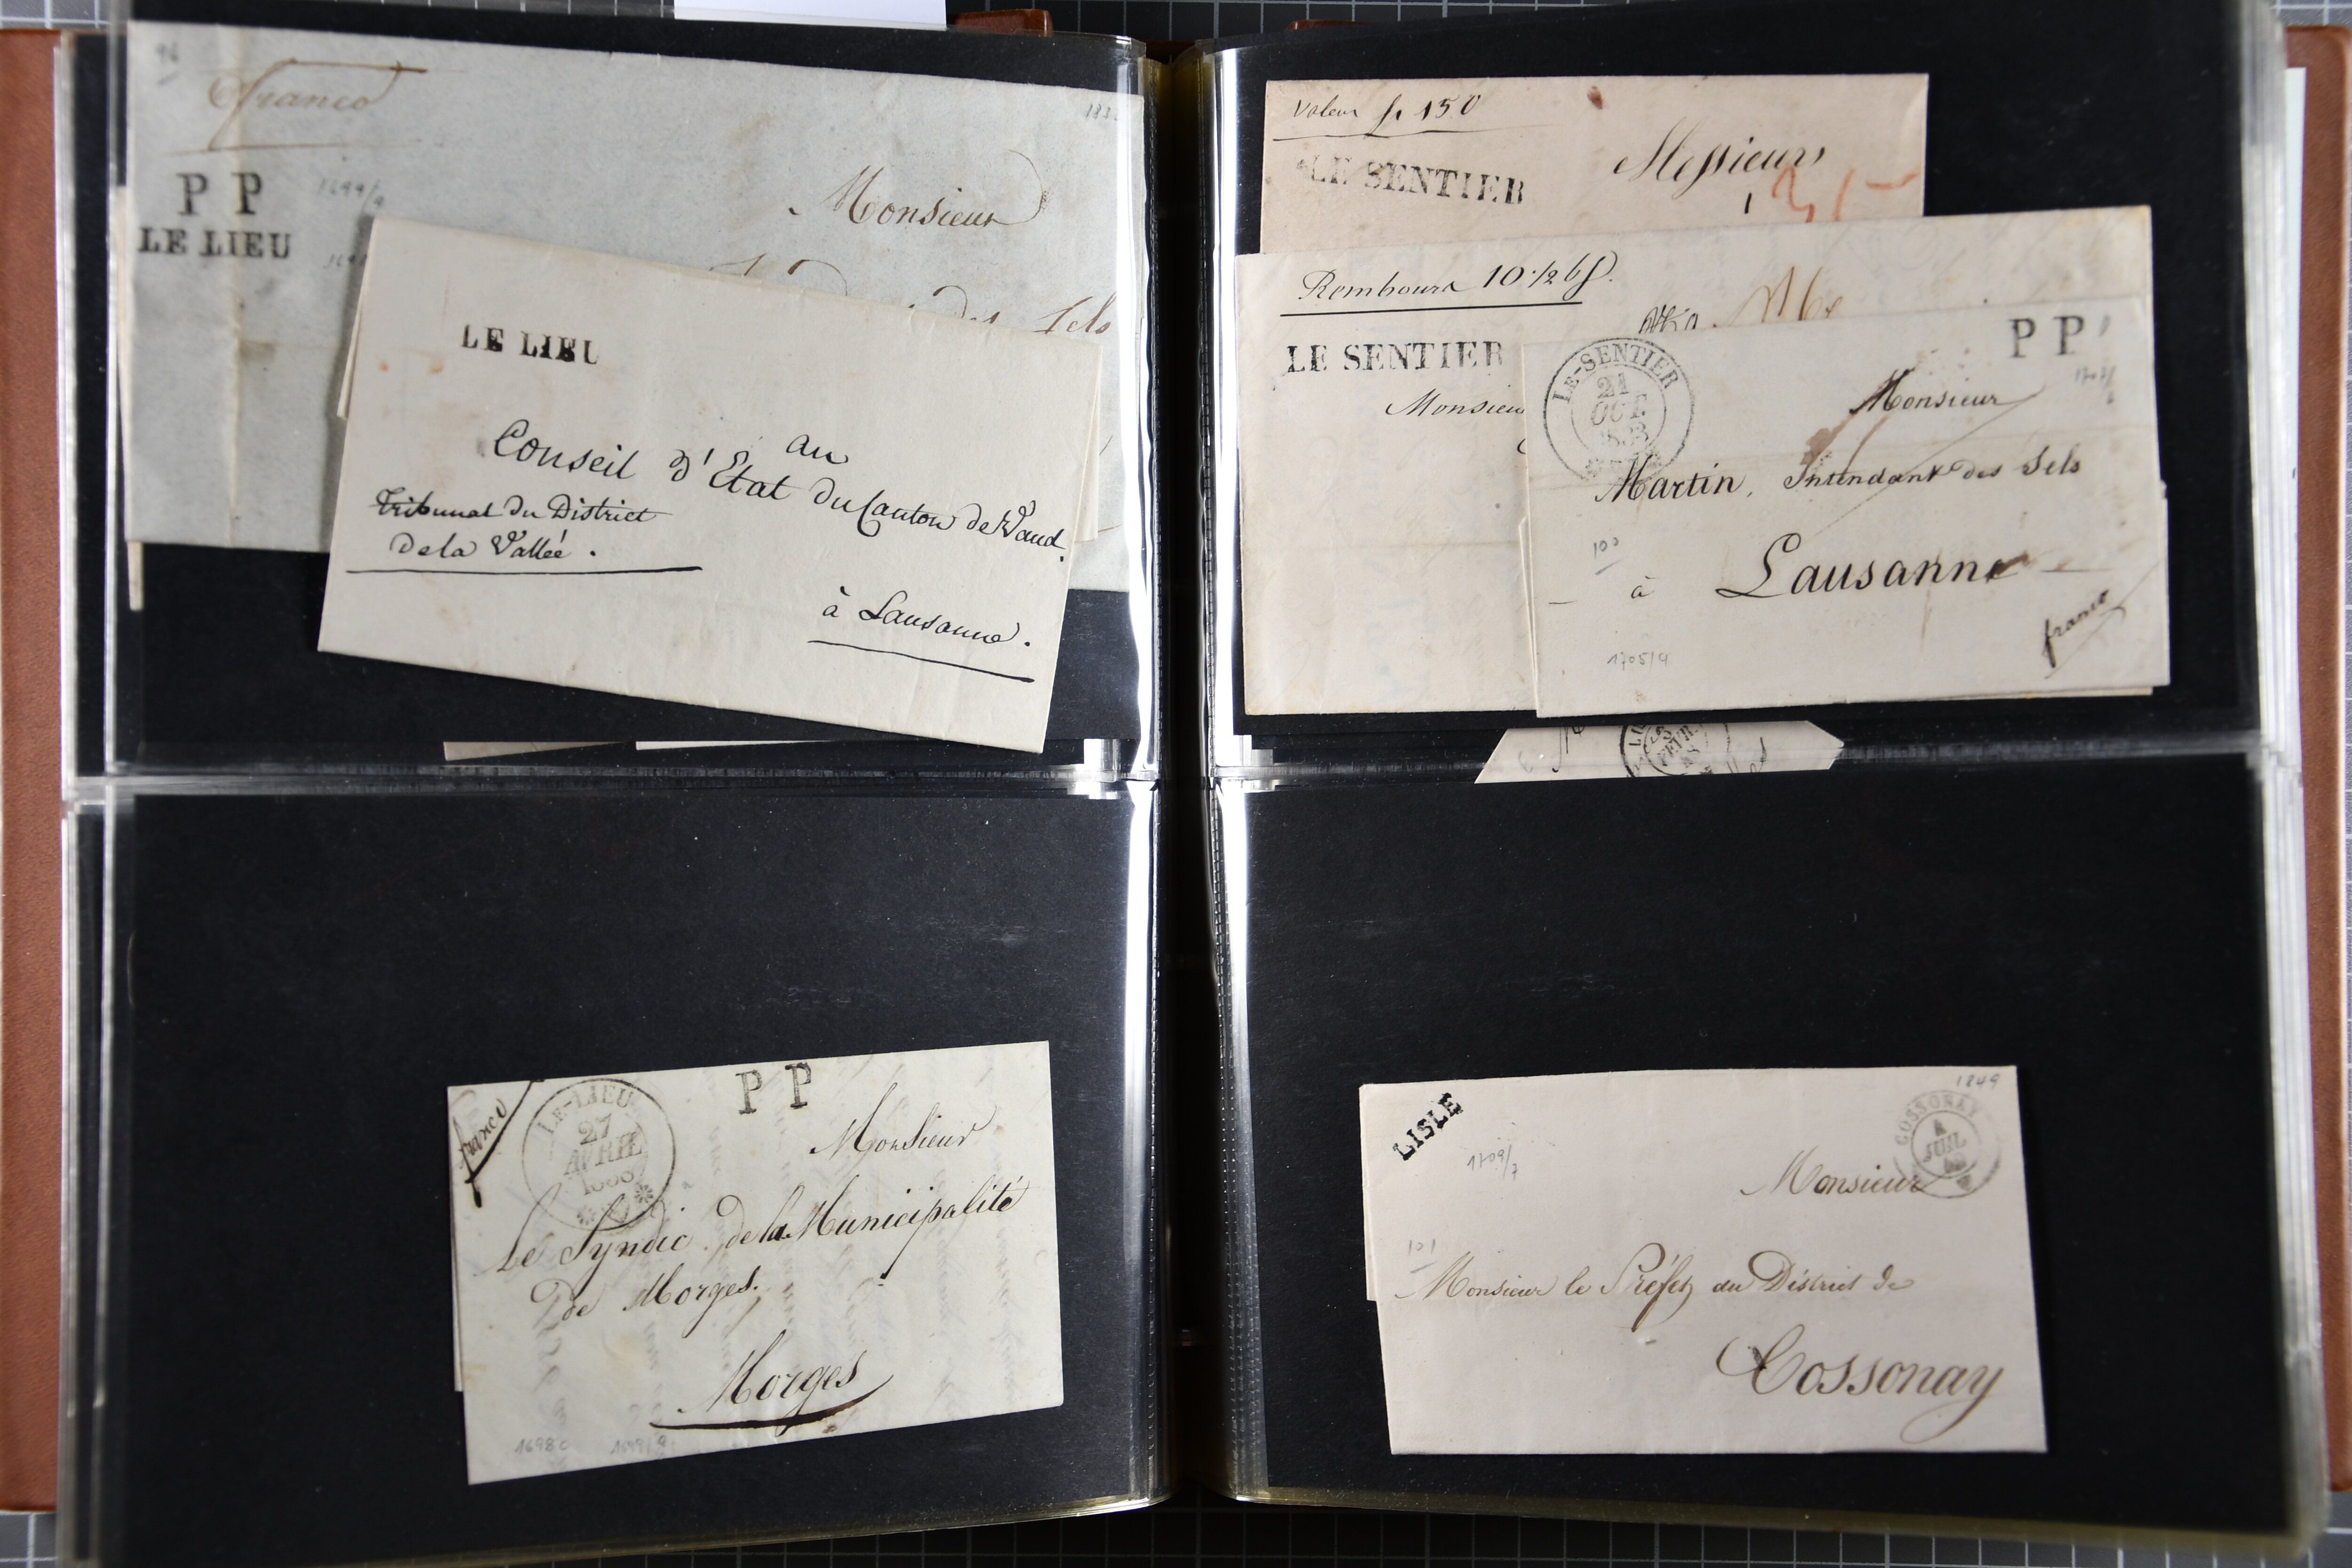 96
Franco
183
P P
LE LIEU
1699/9
Monsieur
des Sels
LE LIEU
au
Conseil d'Etat du Canton de Vaud.
Tribunal du District
de la Vallée.
à Lausanne.
Valeur fr 150
LE SENTIER
Messieurs
Rembours 10 1/2 bf.
LE SENTIER
Monsieu
LE-SENTIER
21
OCT.
P P
Monsieur
Martin, Intendant des Sels
100
à Lausanne
franco
1705/4
FEVR
franco
LE-LIEU
27
AVRIL
1838
P P
Monsieur
Le Syndic de la Municipalité
de Morges.
Morges
1698.0
1699/9
LISLE
1709/7
1849
COSSONAY
4
JUIL
Monsieur
101
Monsieur le Préfet du District de
Cossonay